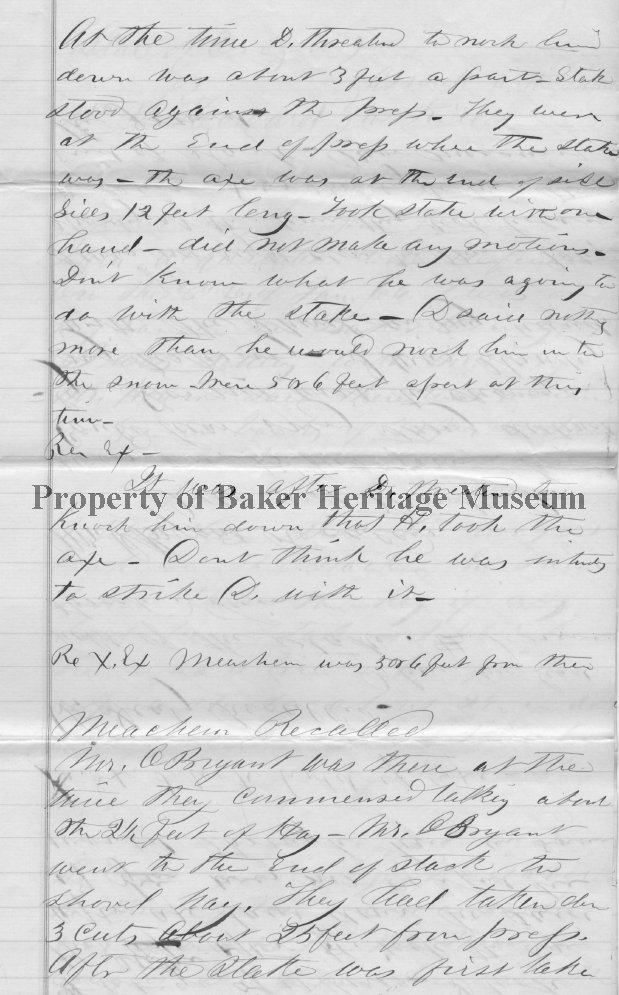 At the time D. threatend to nock him
down was about 3 feet apart - Stake
stood against the press - They were
at the End of press where the stake
was - the axe was at the End of
Sills 12 feet long - Took stake with one
hand - did not make any motions -
Dont know what he was agoing to
do with the stake - D said nothing
more than he would nock him into
the snow were 5 or 6 feet apart at this
time -
Re Ex -
It was after D.
Property of Baker Heritage Museum
knock him down that H. took the
axe - Dont think he was
to strike D. with it -
Re X. Ex Meachem was 5 or 6 feet from them
Meachem Recalled
Mr. OBryant was there at the
time they commensed talking about
the 2½ feet of Hay - Mr. OBryant
went to the End of stack to
shovel hay. They had taken
3 cuts about 25 feet from press.
After the Stake was first